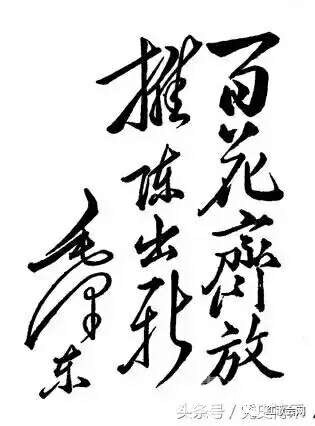 百花齊放
推陈出新
毛泽东
头条号